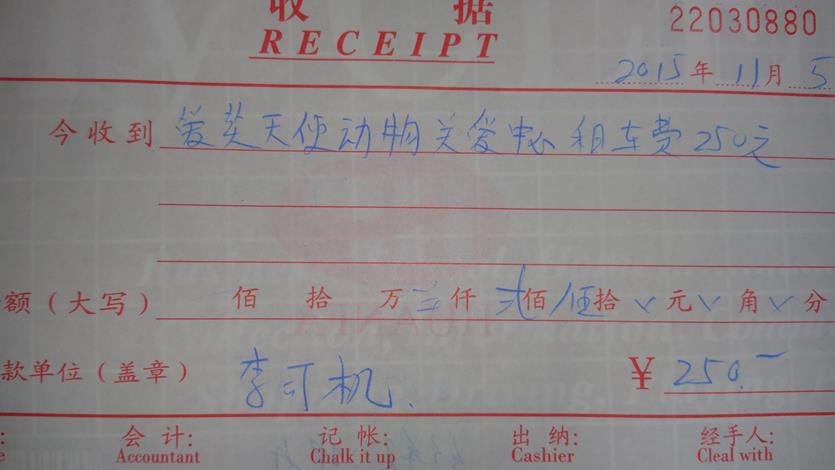 收 据
RECEIPT
22030880
2015年 11月 5
今收到 爱芙天使动物关爱中心租车费250元
额（大写） 佰 拾 万 仟 弍佰 伍拾 元 角 分
款单位（盖章） 李司机. ¥ 250.一
会计: 记帐: 出纳: 经手人:
Accountant Chalk it up Cashier Cleal with